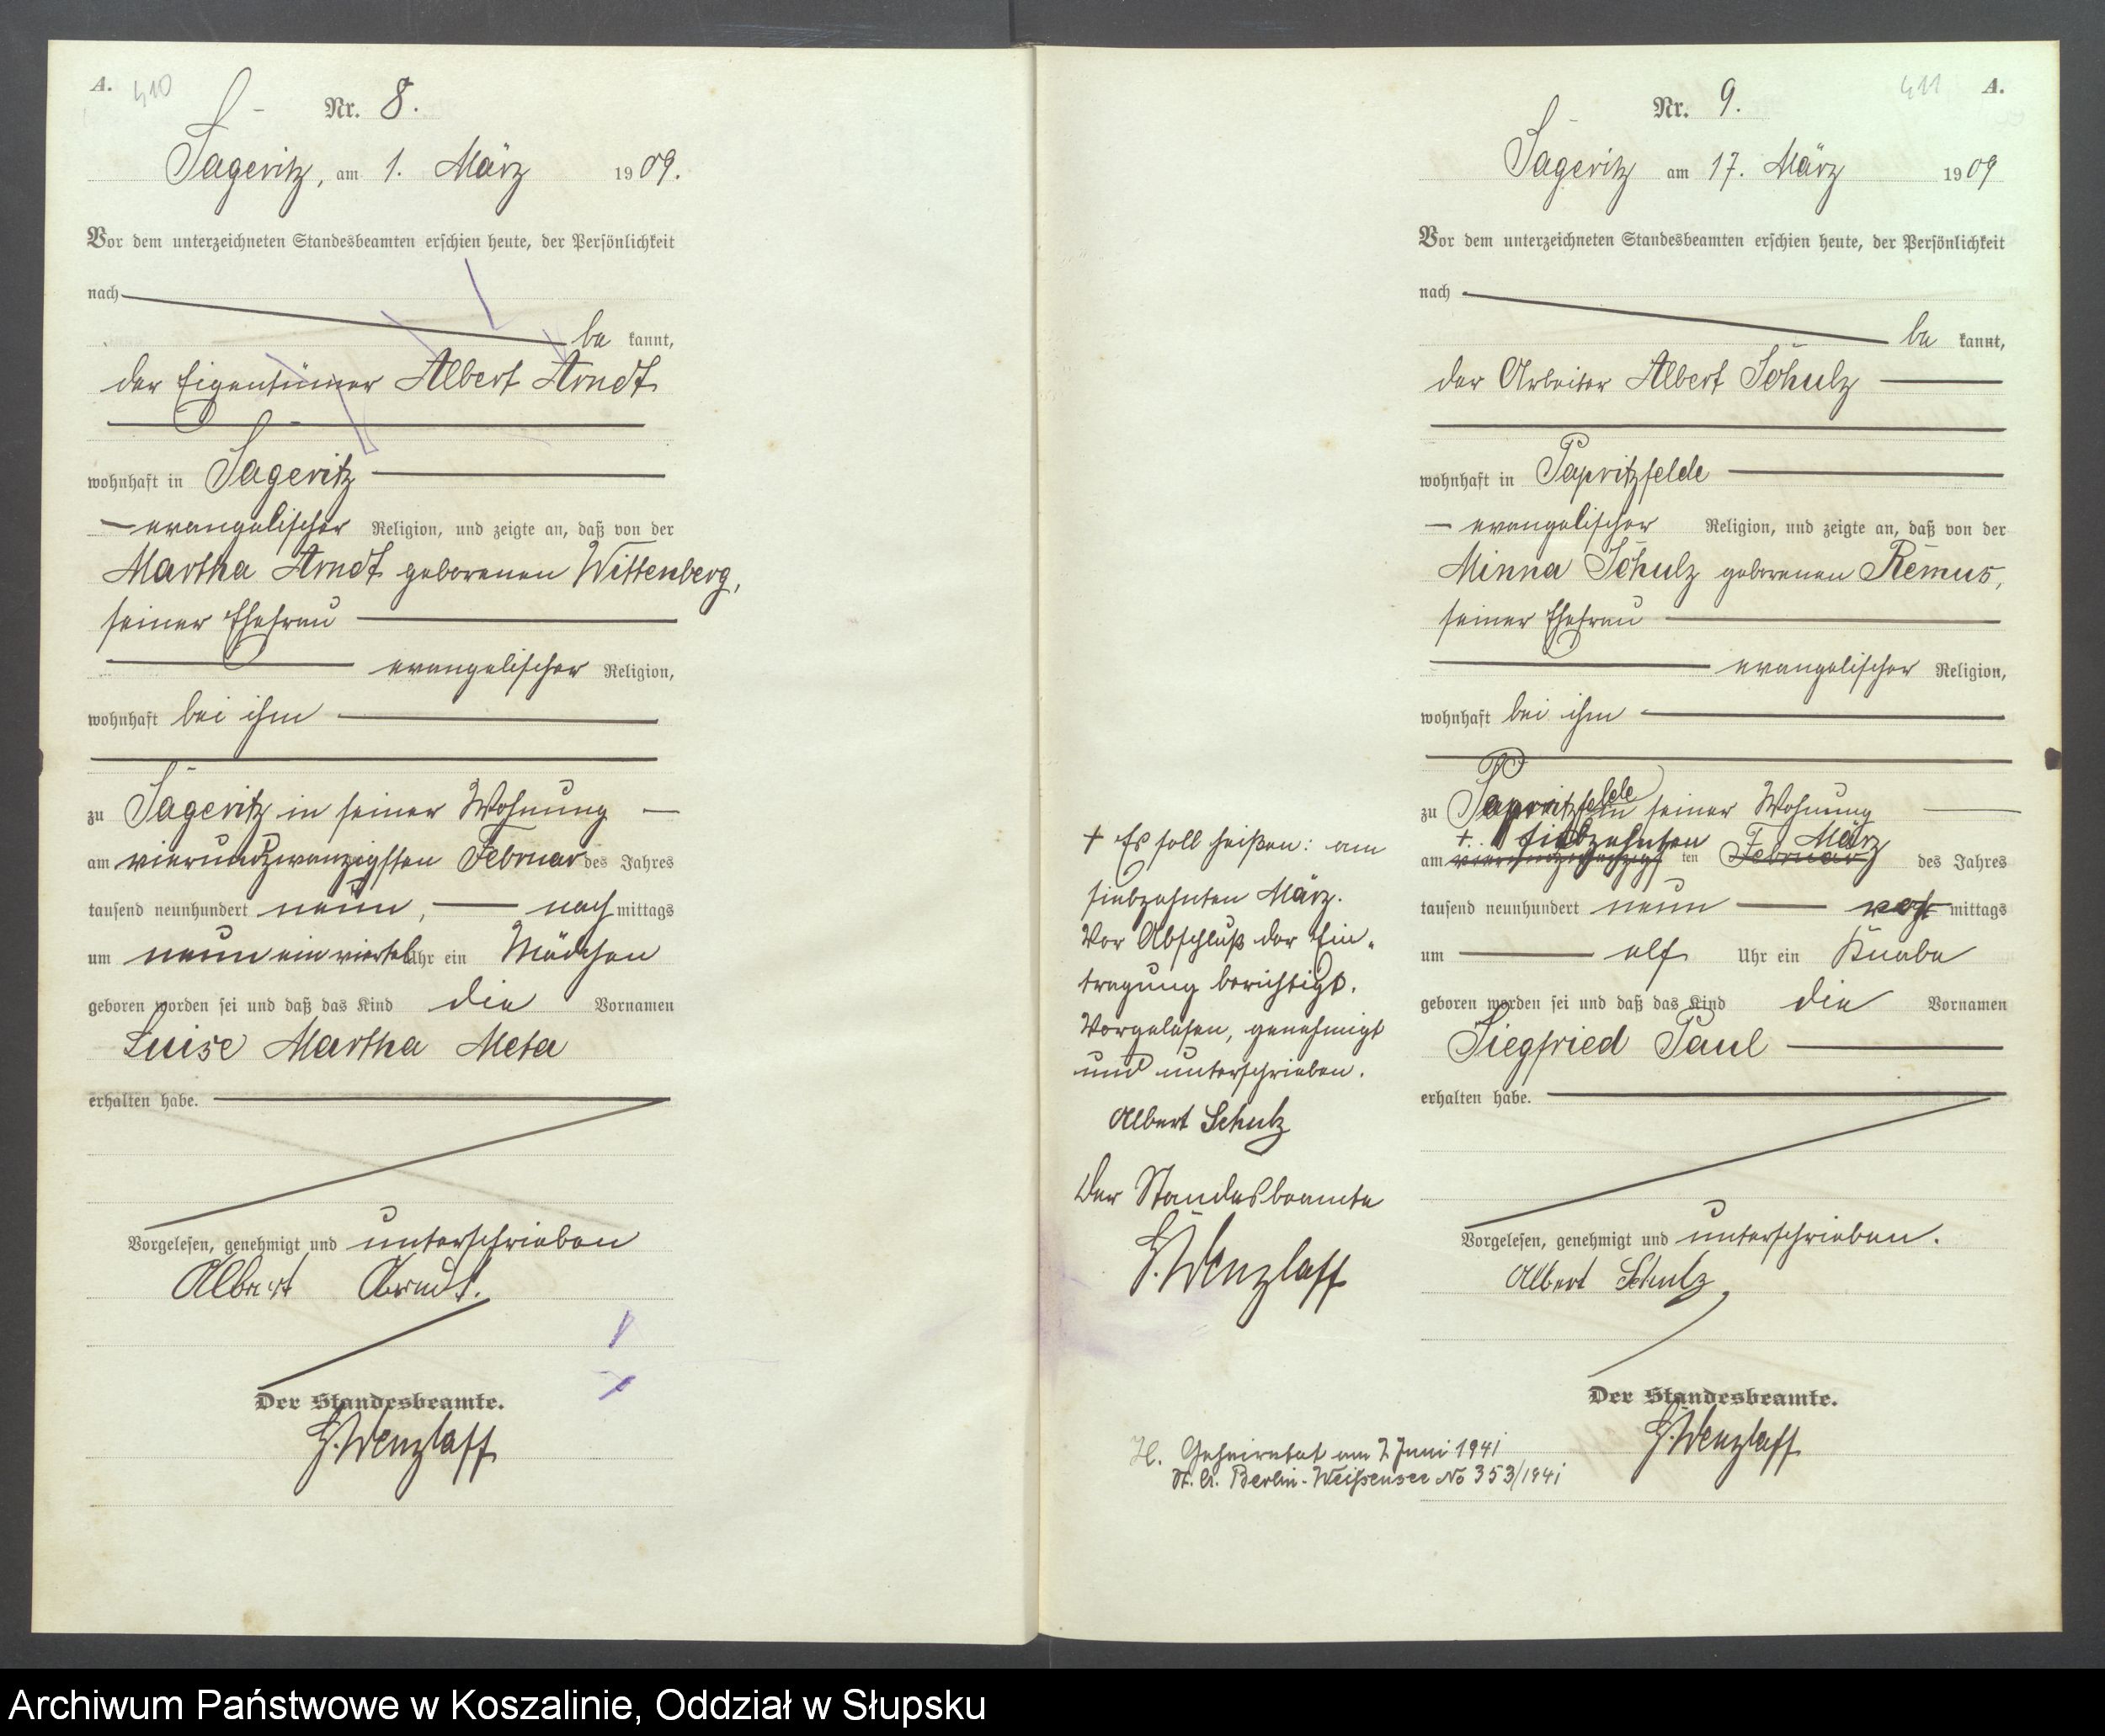 A. 410
Nr. 8.
Sageritz, am 1. März 1909.
Vor dem unterzeichneten Standesbeamten erschien heute, der Persönlichkeit
nach
be kannt,
der Eigentümer Albert Arndt
wohnhaft in Sageritz
evangelischer Religion, und zeigte an, daß von der
Martha Arndt geborenen Wittenberg,
seiner Ehefrau
evangelischer Religion,
wohnhaft bei ihm
zu Sageritz in seiner Wohnung
am vierundzwanzigsten Februar des Jahres
tausend neunhundert neun, nach mittags
um neun ein viertel Uhr ein Mädchen
geboren worden sei und daß das Kind die Vornamen
Luise Martha Meta
erhalten habe.
Vorgelesen, genehmigt und unterschrieben
Albert Arndt.
Der Standesbeamte.
H. Wenzlaff
411 A.
Nr. 9.
Sageritz am 17. März 1909
Vor dem unterzeichneten Standesbeamten erschien heute, der Persönlichkeit
nach
be kannt,
der Arbeiter Albert Schulz
wohnhaft in Papritzfelde
evangelischer Religion, und zeigte an, daß von der
Minna Schulz geborenen Remus,
seiner Ehefrau
evangelischer Religion,
wohnhaft bei ihm
zu Papritzfelde in seiner Wohnung
+ siebzehnten März
am vierundzwanzigsten Februar des Jahres
tausend neunhundert neun vor mittags
um elf Uhr ein Knabe
geboren worden sei und daß das Kind die Vornamen
Siegfried Paul
erhalten habe.
Vorgelesen, genehmigt und unterschrieben.
Albert Schulz
Der Standesbeamte.
H. Wenzlaff
+ Es soll heißen: am
siebzehnten März.
Vor Abschluß der Ein-
tragung berichtigt.
Vorgelesen, genehmigt
und unterschrieben.
Albert Schulz
Der Standesbeamte
H. Wenzlaff
H. Geheiratet am 7 Juni 1941
St. A. Berlin-Weißensee No 353/1941
Archiwum Państwowe w Koszalinie, Oddział w Słupsku